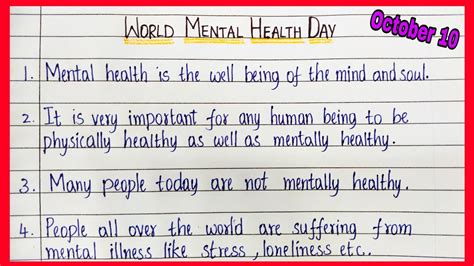 WORLD MENTAL HEALTH DAY
October 10
1. Mental health is the well being of the mind and soul.
2. It is very important for any human being to be
physically healthy as well as mentally healthy.
3. Many people today are not mentally healthy.
4. People all over the world are suffering from
mental illness like stress, loneliness etc.